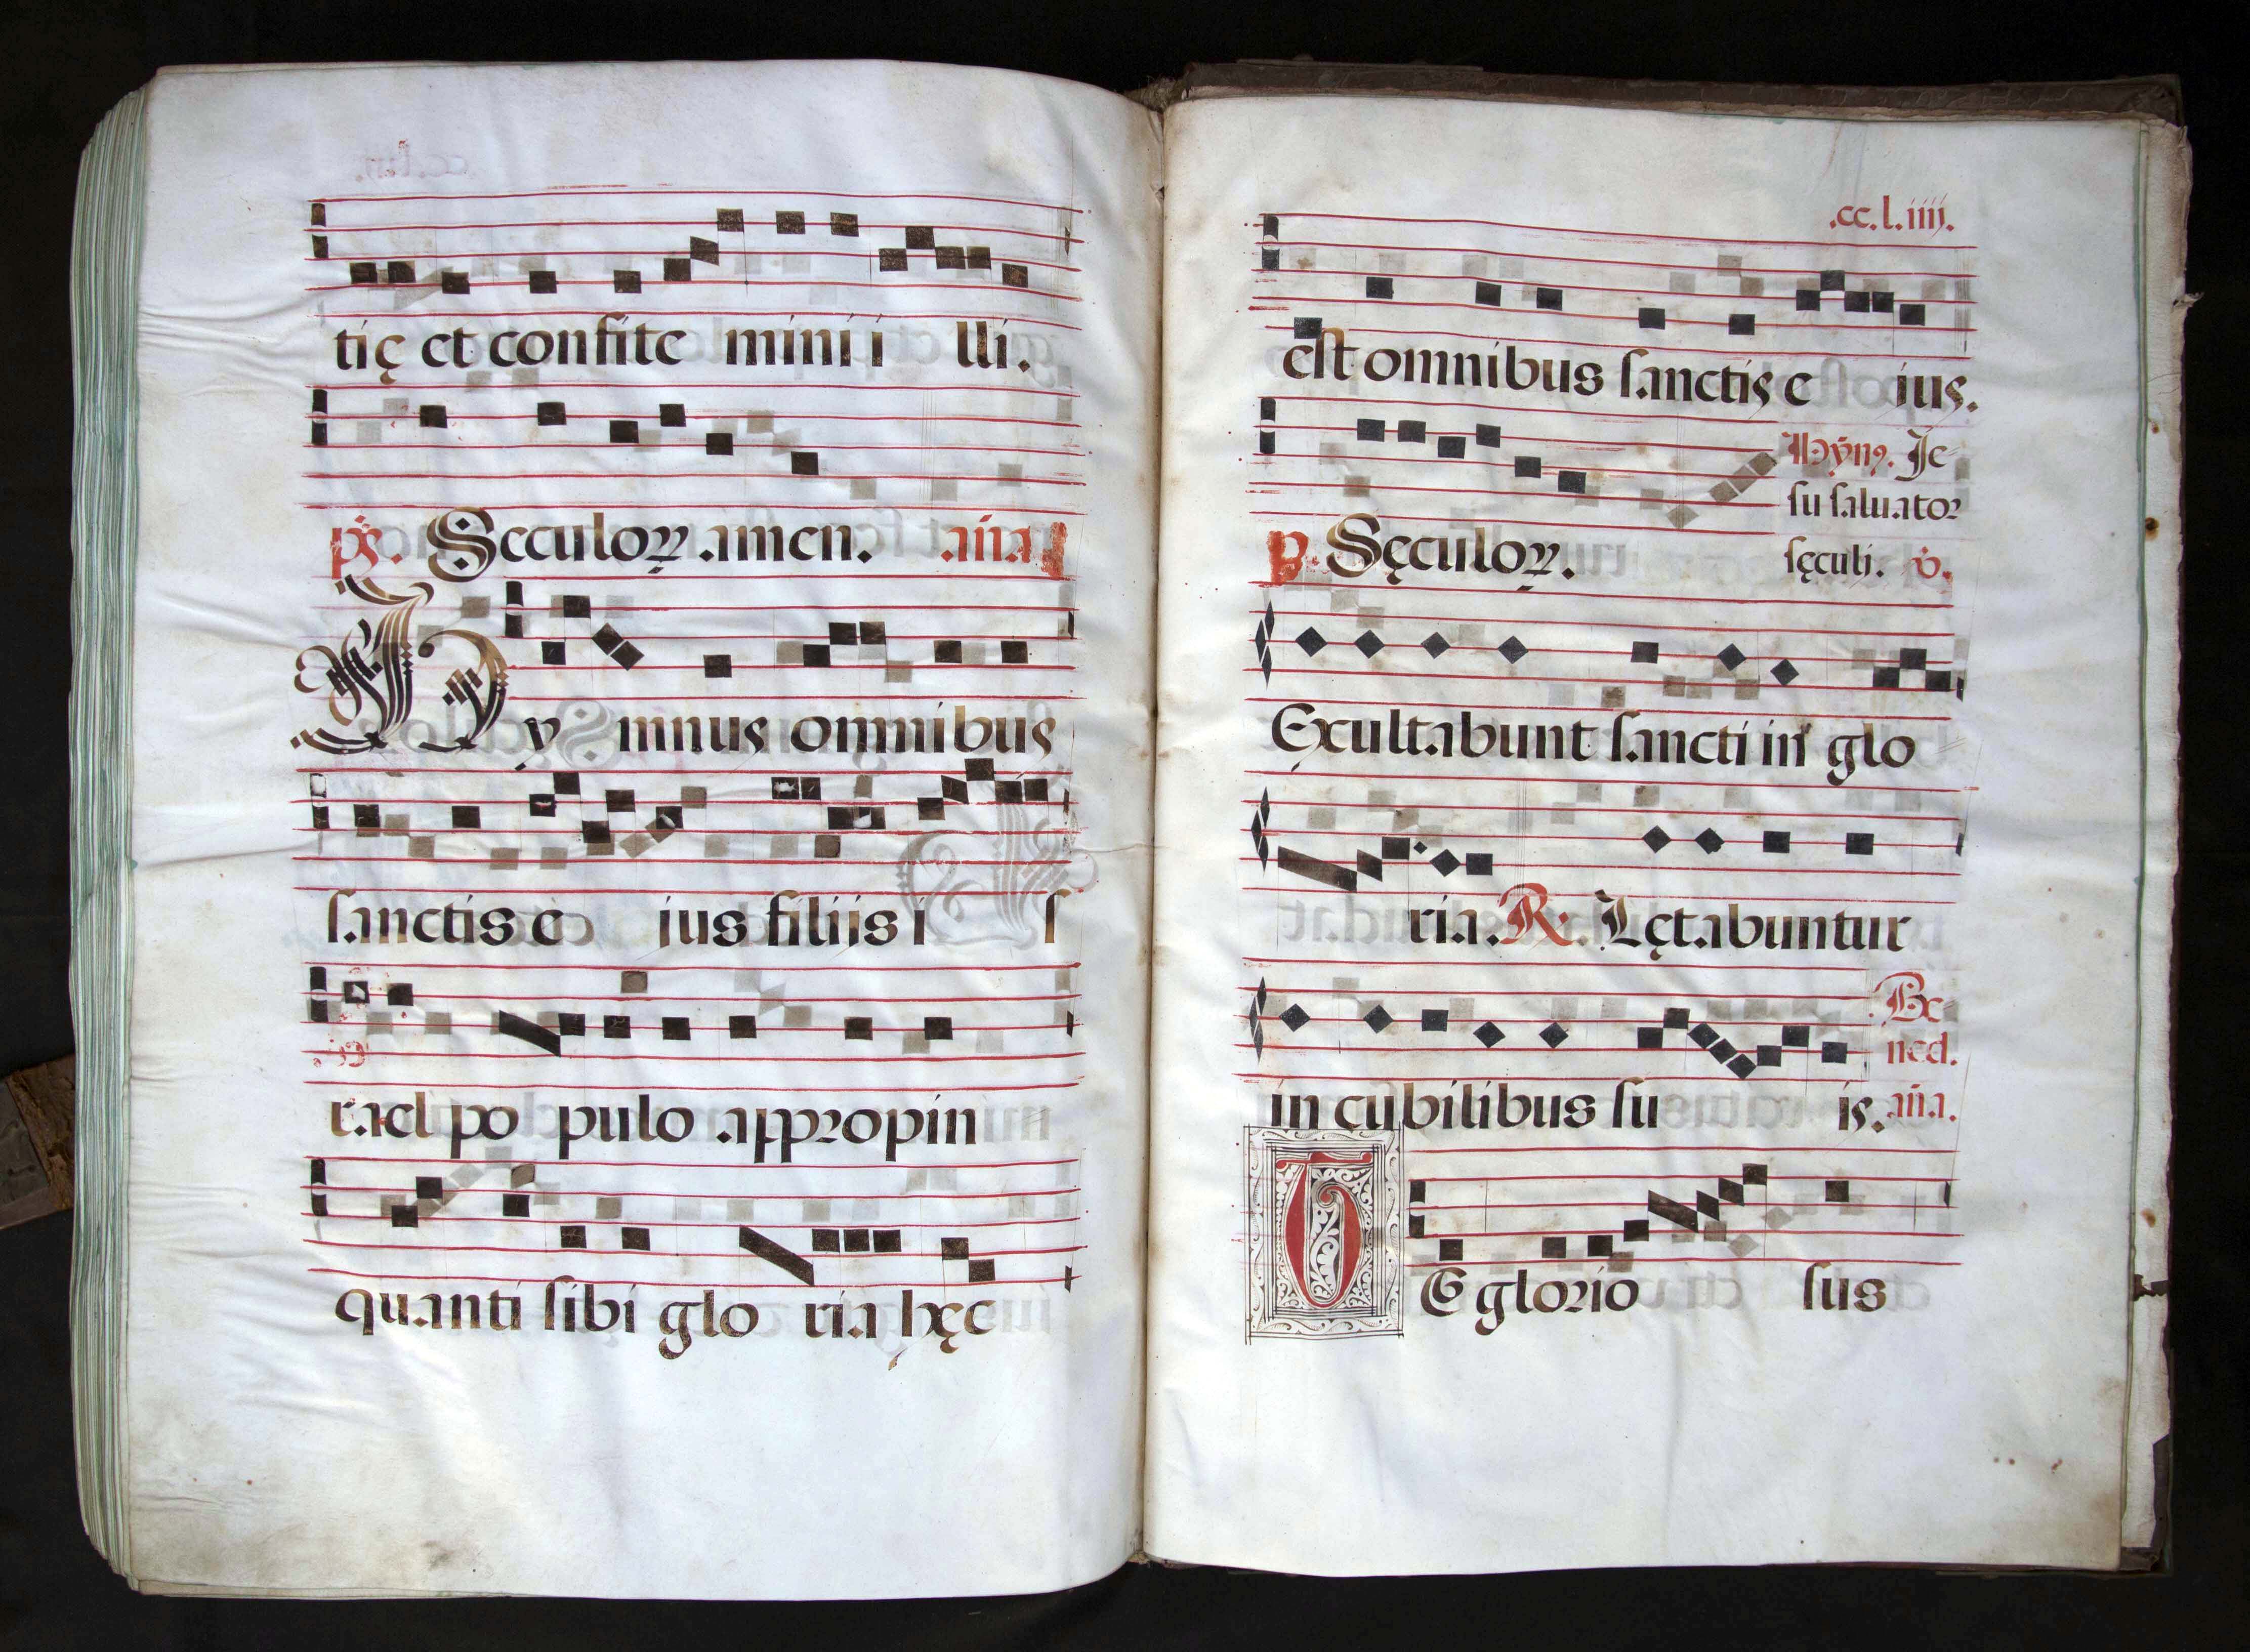 tię et confite mini i lli.
ps. Seculoꝝ amen. aña
Hy mnus omnibus
sanctis e ius filijs i s
rael po pulo appropin
quanti sibi glo ria hęc
.cc.l.iiij.
est omnibus sanctis e ius.
Hỹmꝯ. Je-
su saluator
p. Sęculoꝝ. sęculi. v.
Exultabunt sancti in glo
ria. R. Lętabuntur
Be-
ned.
in cubilibus su is. aña.
TE glorio sus